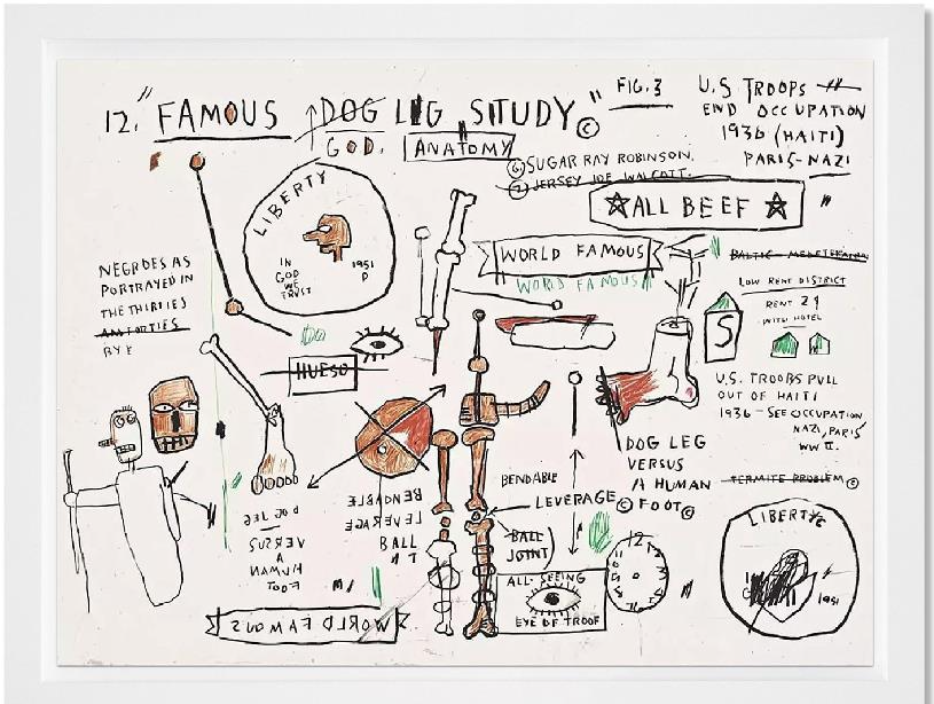 12. "FAMOUS DOG LEG STUDY" ©
GOD.
ANATOMY
FIG. 3
U.S TROOPS
END OCCUPATION
1936 (HAITI)
PARIS-NAZI
⑥ SUGAR RAY ROBINSON.
⑦ JERSEY JOE WALCOTT.
☆ALL BEEF☆ "
LIBERTY
IN
GOD
WE
TRUST
1951
D
WORLD FAMOUS
WORLD FAMOUS
LOW RENT DISTRICT
RENT 2¶
WITH HOTEL
S
NEGROES AS
PORTRAYED IN
THE THIRTIES
BY
HUESO
U.S. TROOPS PULL
OUT OF HAITI
1936-SEE OCCUPATION
NAZI, PARIS
WW II.
TERMITE PROBLEM ©
DOG LEG
VERSUS
A HUMAN
FOOT ©
BENDABLE
LEVERAGE ©
BALL
JOINT
BENDABLE
LEVERAGE
BALL
DOG LEG
VERSUS
A
HUMAN
FOOT
WORLD FAMOUS
ALL-SEEING
EYE OF TROOF
12
LIBERTY
1951